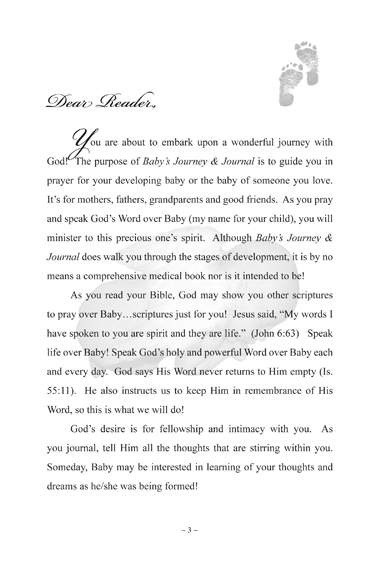 Dear Reader,
You are about to embark upon a wonderful journey with
God! The purpose of Baby's Journey & Journal is to guide you in
prayer for your developing baby or the baby of someone you love.
It's for mothers, fathers, grandparents and good friends. As you pray
and speak God's Word over Baby (my name for your child), you will
minister to this precious one's spirit. Although Baby's Journey &
Journal does walk you through the stages of development, it is by no
means a comprehensive medical book nor is it intended to be!
As you read your Bible, God may show you other scriptures
to pray over Baby…scriptures just for you! Jesus said, “My words I
have spoken to you are spirit and they are life.” (John 6:63) Speak
life over Baby! Speak God's holy and powerful Word over Baby each
and every day. God says His Word never returns to Him empty (Is.
55:11). He also instructs us to keep Him in remembrance of His
Word, so this is what we will do!
God's desire is for fellowship and intimacy with you. As
you journal, tell Him all the thoughts that are stirring within you.
Someday, Baby may be interested in learning of your thoughts and
dreams as he/she was being formed!
~ 3 ~